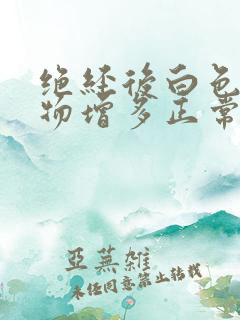 绝经后白色
物增多正常
亚芜雑
未经同意禁止转载